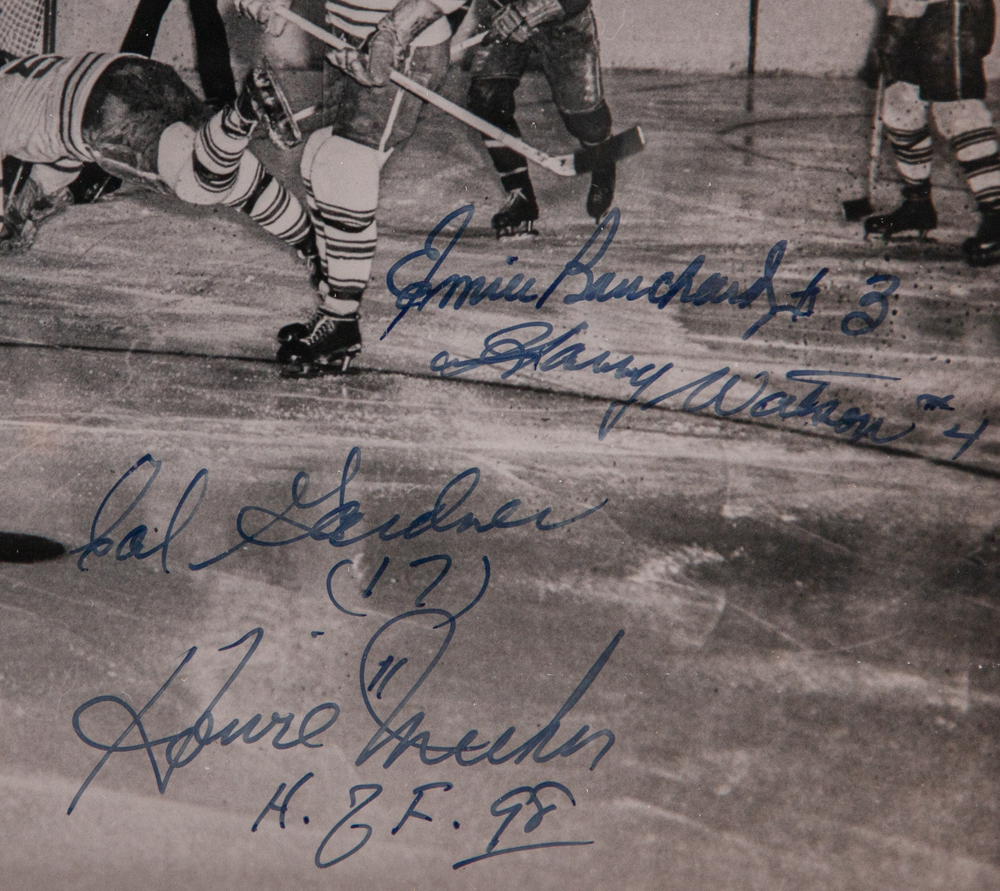 Emile Bouchard # 3
Harry Watson #4
Cal Gardner
(17)
Howie Meeker
11
H.O.F. 98